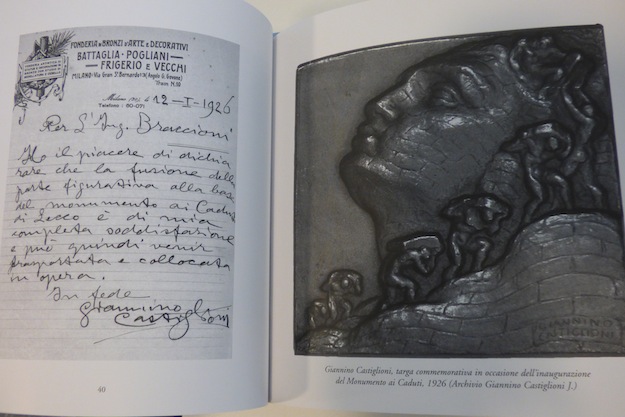 FONDERIA DI BRONZI D'ARTE E DECORATIVI
BATTAGLIA - POGLIANI
FRIGERIO E VECCHI
MILANO - Via Gran S. Bernardo
Tram N. 10
Milano 12-I-1926
Per L'Ing. Braccioni
Ho il piacere di dichia
rare che la fusione della
parte figurativa alla base
del monumento ai Caduti
di Lecco è di mia
completa soddisfazione
e può quindi venir
trasportata e collocata
in opera.
In fede
Giannino
Castiglioni
40
GIANNINO
CASTIGLIONI
Giannino Castiglioni, targa commemorativa in occasione dell'inaugurazione
del Monumento ai Caduti, 1926 (Archivio Giannino Castiglioni J.)